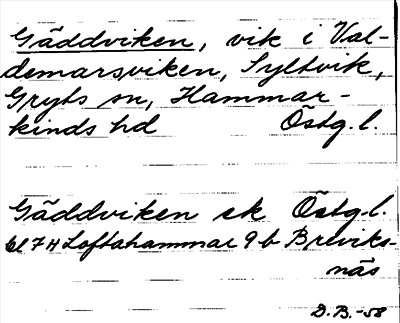 Gäddviken, vik i Val-
demarsviken, Syltvik,
Gryts sn, Hammar-
kinds hd Östg. l.
Gäddviken ek Östg. l.
bl 7H Loftahammar 9b Breviks-
näs
D.B.-58